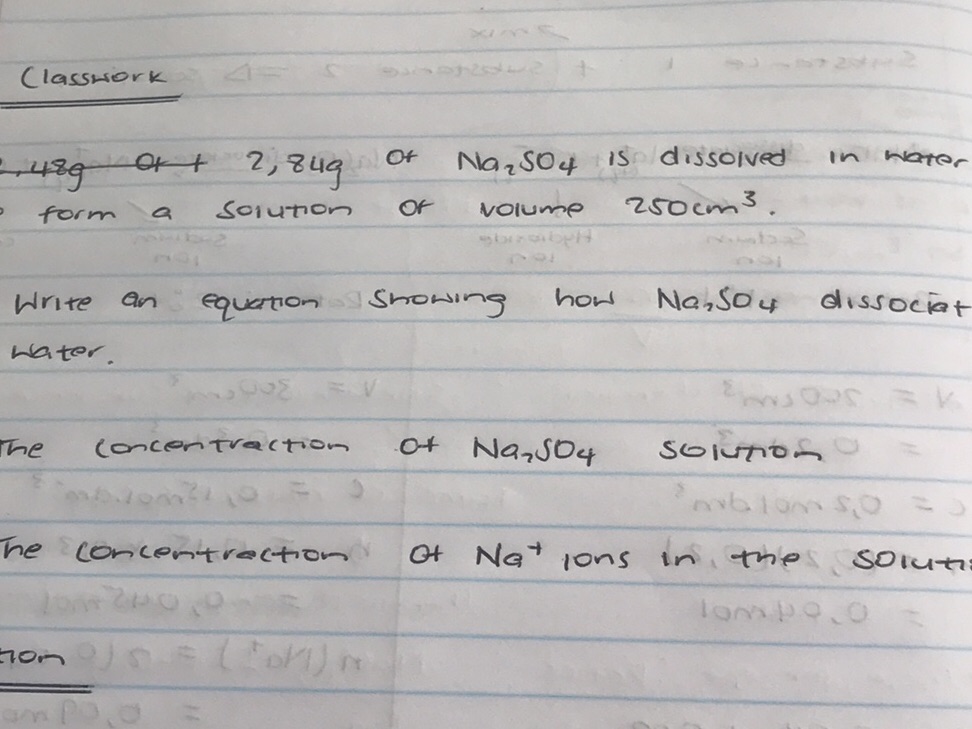 Classwork
2,84g of Na₂SO₄ is dissolved in water
form a solution of volume 250cm³.
Write an equation showing how Na₂SO₄ dissociat
water.
The concentraction of Na₂SO₄ solution
The concentraction of Na⁺ ions in the soluti
tion